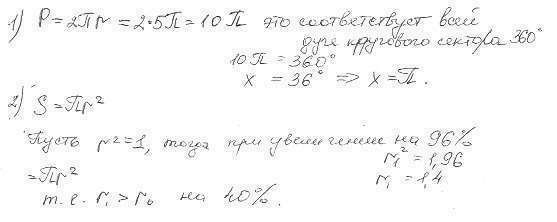 1) P = 2πr = 2·5π = 10π это соответствует всей
дуге кругового сектора 360°
10π = 360°
x = 36° => x = π.
2) S = πr²
Пусть r² = 1, тогда при увеличении на 96%
r₁² = 1,96
= πr²
r₁ = 1,4
т.е. r₁ > r₀ на 40%.